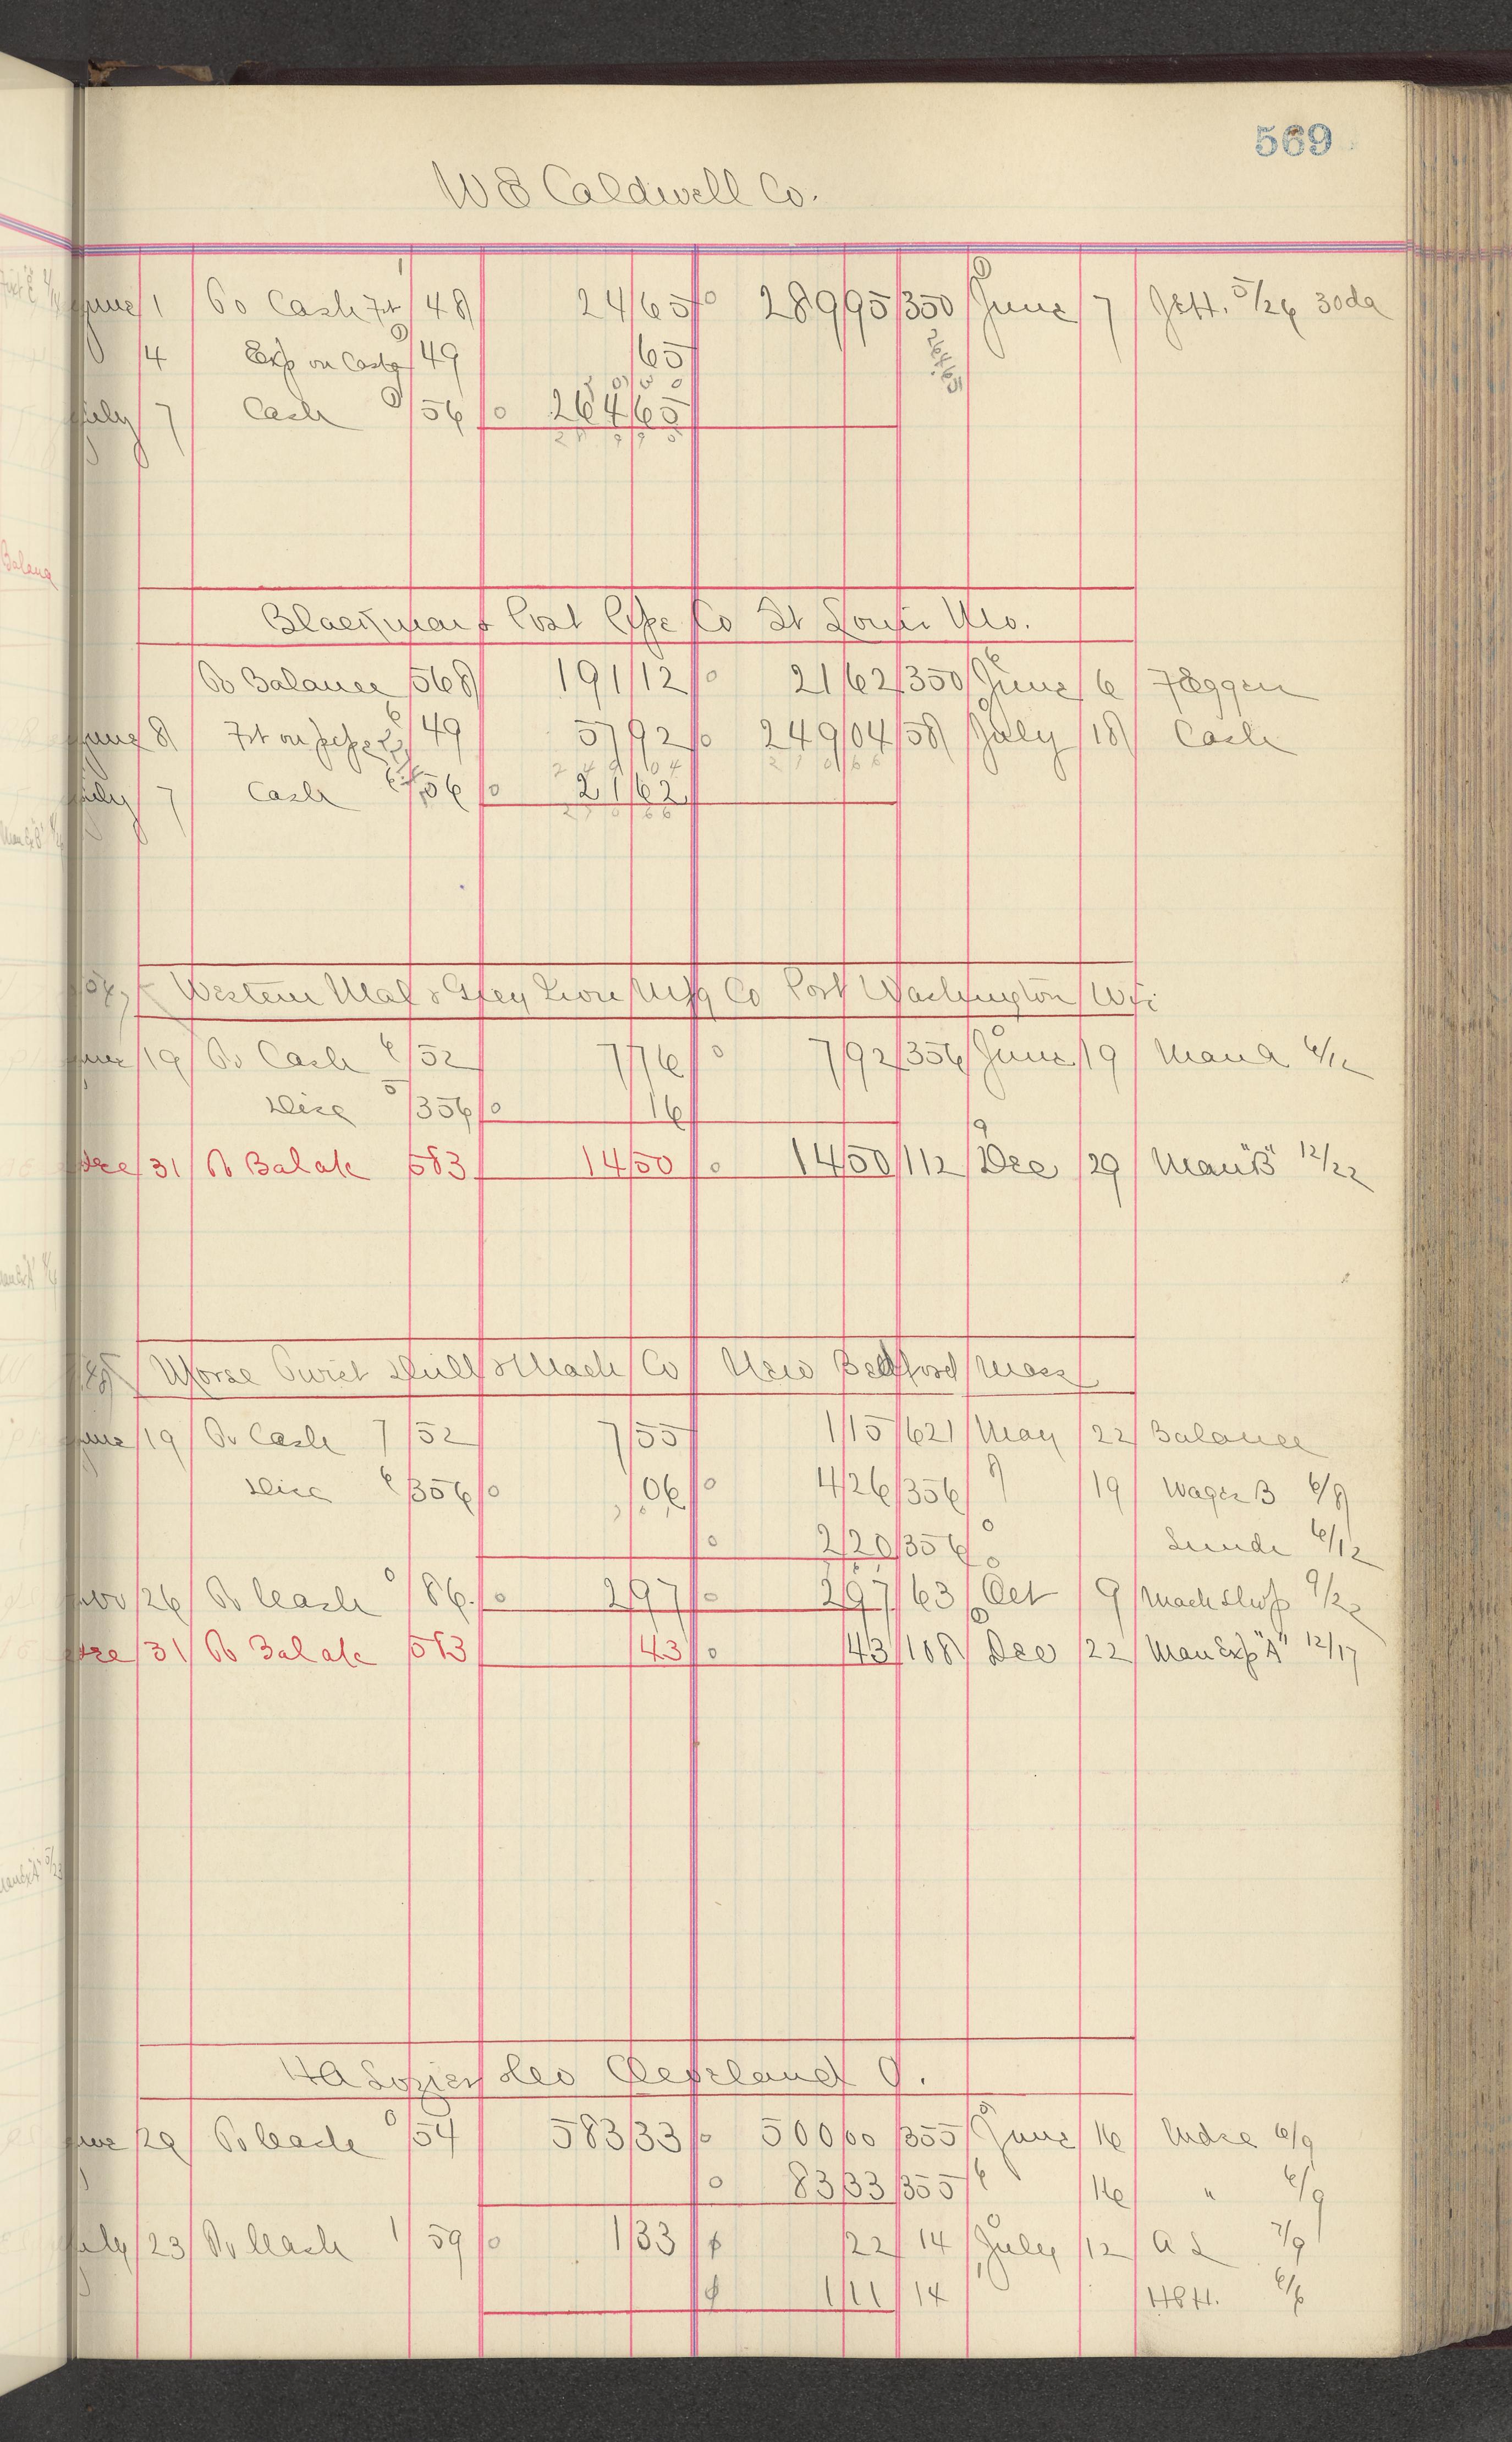 569
W E Caldwell Co.
June 1 To Cash Frt 48 24 65 289 95 350 June 7 5/26 30da
4 Exp on Castg 49 65 264.65
July 7 Cash 56 264 65
289 95
Cast Pipe Co St Louis Mo.
To Balance 568 191 12 21 62 350 June 6
June 8 Frt on pipe 49 57 92 249 04 58 July 18 Cash
249 04 270 66
July 7 Cash 56 21 62
270 66
Western Mal & Grey Iron Mfg Co Port Washington Wis
June 19 To Cash 52 7 76 7 92 356 June 19 Man A 6/12
Disc 356 16
Dec 31 To Balance 583 14 50 14 50 112 Dec 29 Man "B" 12/22
Morse Twist Drill & Mach Co New Bedford Mass
June 19 To Cash 52 7 55 1 15 621 May 22 Balance
Disc 356 06 4 26 356 19 Wages B 6/9
2 20 356 6/12
Nov 26 To Cash 86 2 97 2 97 63 Oct 9 Mach Shop 9/22
Dec 31 To Balance 583 43 43 108 Dec 22 Man Exp "A" 12/17
H A Lozier & Co Cleveland O.
June 29 To Cash 54 583 33 500 00 355 June 16 Mdse 6/9
83 33 355 16 " 6/9
July 23 To Cash 59 1 33 22 14 July 12 A L 7/9
1 11 14